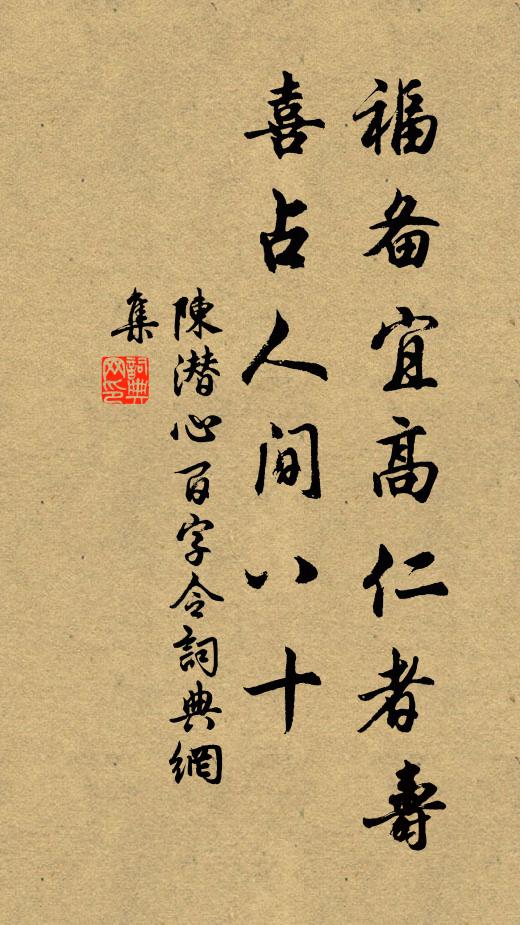 福备宜高仁者壽
喜占人间八十
陳潜心百字令詞典網
集
詞典
网印